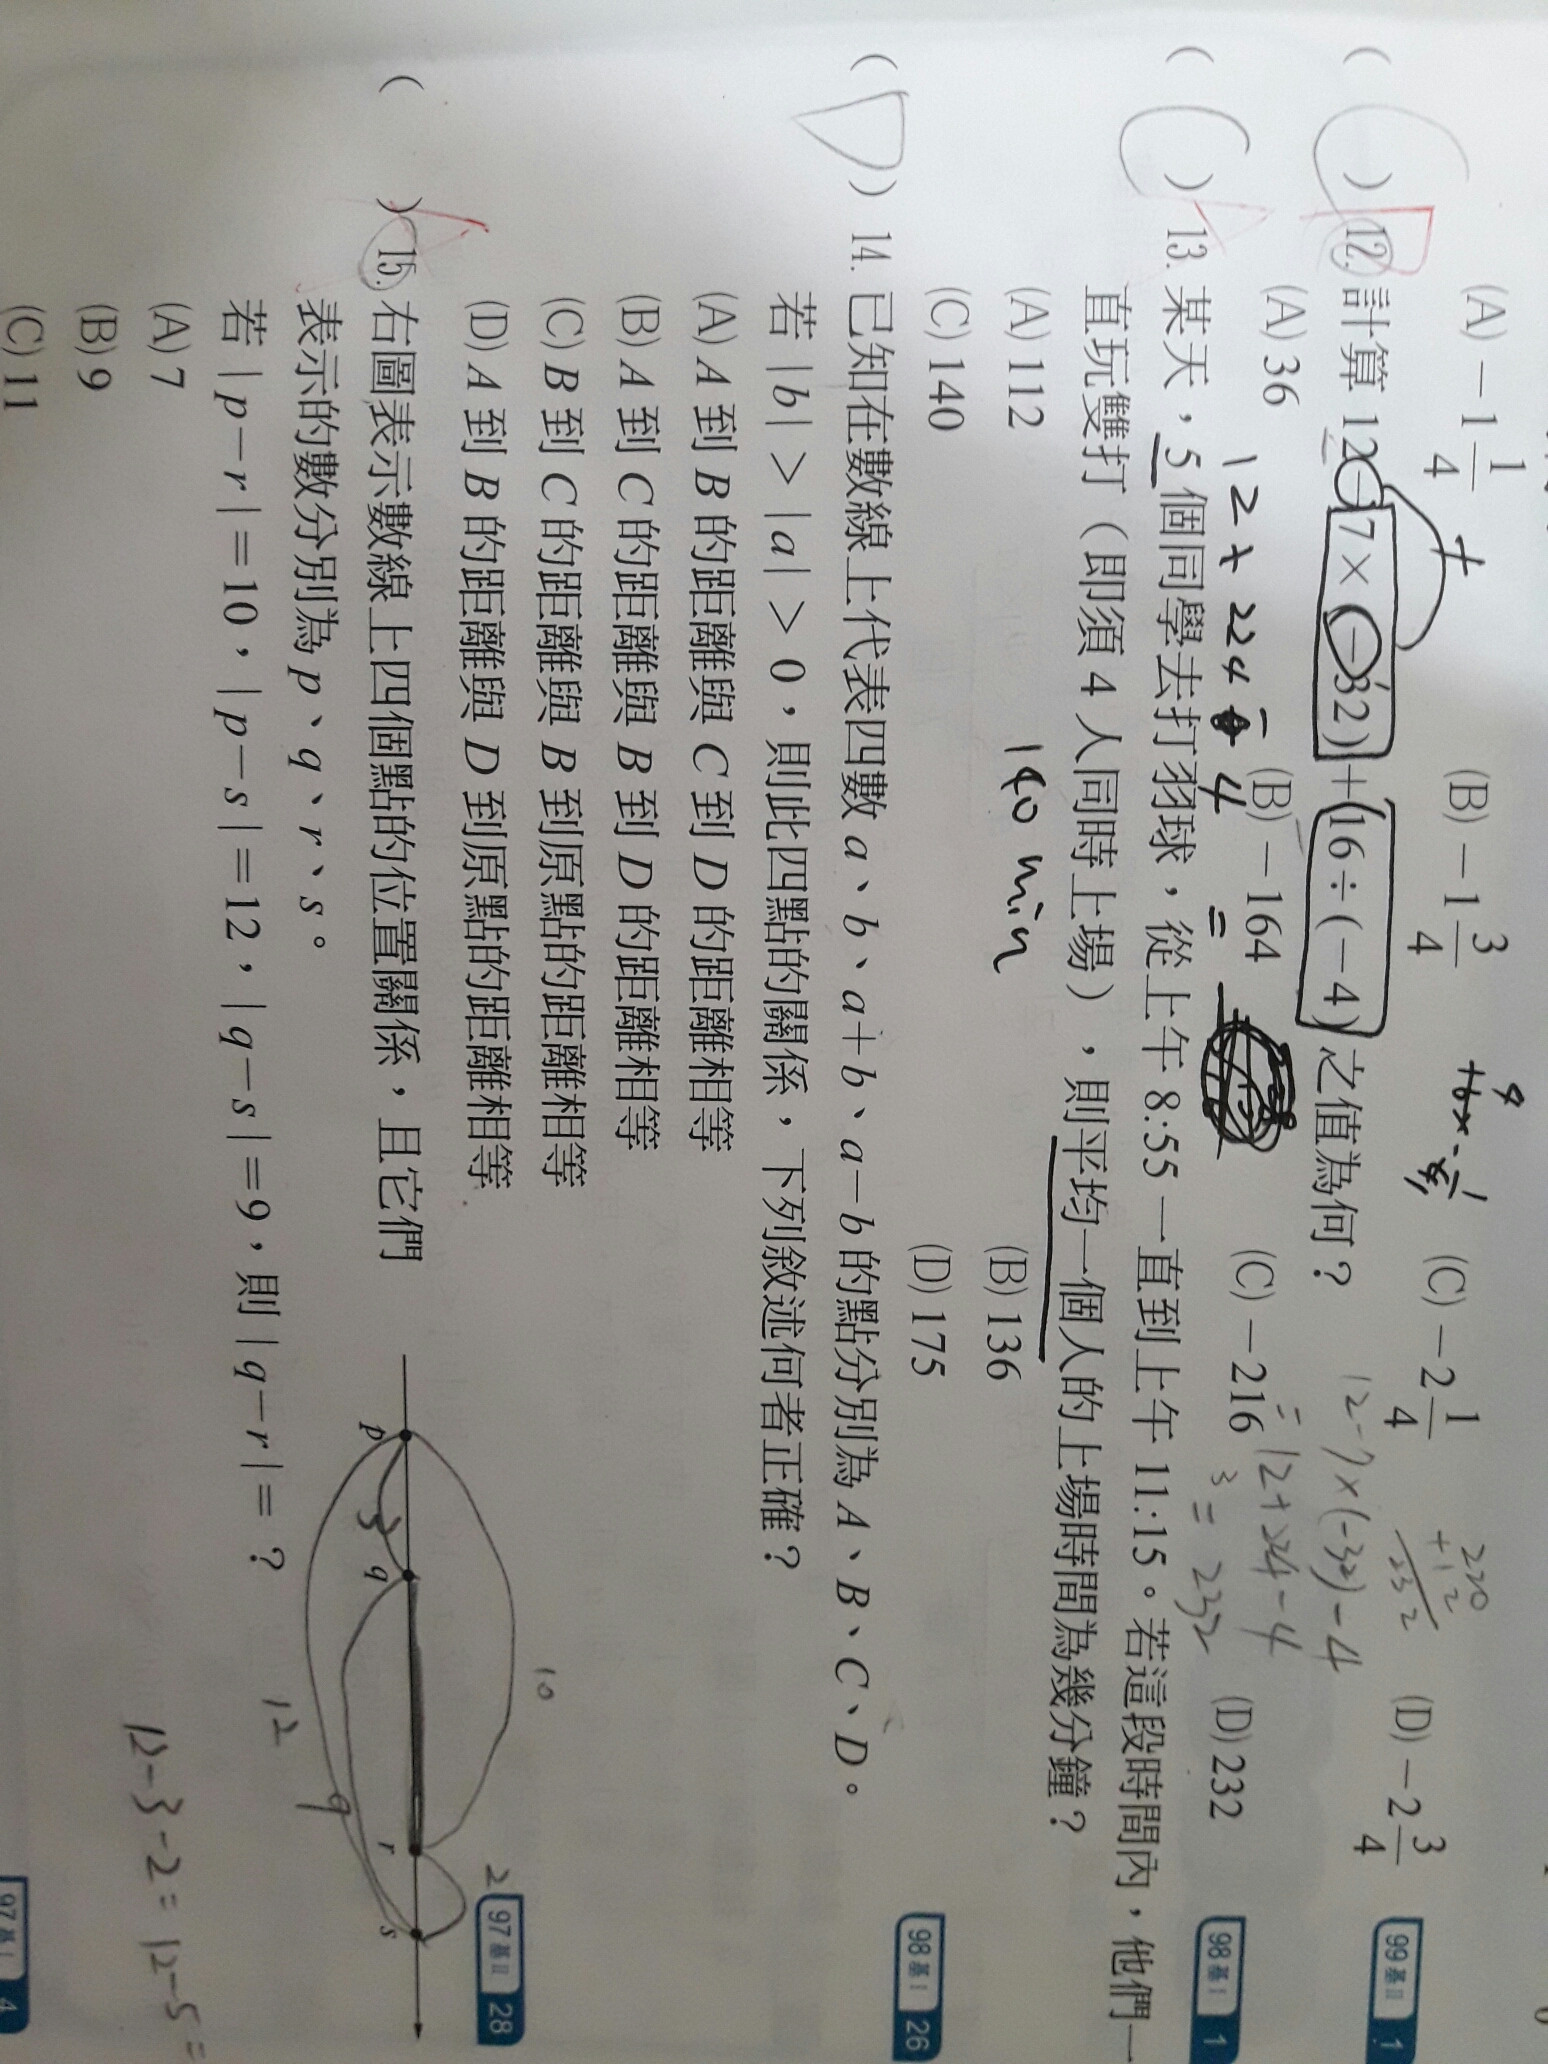 (A) −1 1/4 (B) −1 3/4 (C) −2 1/4 (D) −2 3/4
( ) 12. 計算 12−7×(−32)+16÷(−4) 之值為何？ 99基II 1
(A) 36 (B) −164 (C) −216 (D) 232
220
+12
232
12−7×(−32)−4
=12+224−4
=232
12+224−4
=
( ) 13. 某天，5 個同學去打羽球，從上午 8:55 一直到上午 11:15。若這段時間內，他們一 98基I 1
直玩雙打（即須 4 人同時上場），則平均一個人的上場時間為幾分鐘？
(A) 112 (B) 136
140 min
(C) 140 (D) 175
( D ) 14. 已知在數線上代表四數 a、b、a+b、a−b 的點分別為 A、B、C、D。 98基I 26
若 |b| > |a| > 0，則此四點的關係，下列敘述何者正確？
(A) A 到 B 的距離與 C 到 D 的距離相等
(B) A 到 C 的距離與 B 到 D 的距離相等
(C) B 到 C 的距離與 B 到原點的距離相等
(D) A 到 B 的距離與 D 到原點的距離相等
( ) 15. 右圖表示數線上四個點的位置關係，且它們 97基II 28
表示的數分別為 p、q、r、s。
若 |p−r|=10，|p−s|=12，|q−s|=9，則 |q−r|=？
(A) 7
(B) 9
(C) 11
10
2
p q r s
3
9
12
12−3−2=12−5=
97基I 4